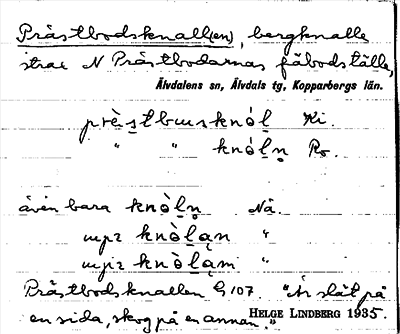 Prästbodsknall(en), bergknalle
strax N Prästbodarnas fäbodställe,
Älvdalens sn, Älvdals tg, Kopparbergs län.
prèstbusknòl Ki.
" " knòlṇ Ro.
även bara knòlṇ Nä.
knòlạn "
knòlạm "
Prästbodsknallen G 107 "Är slät på
en sida, skog på en annan."
HELGE LINDBERG 1935.